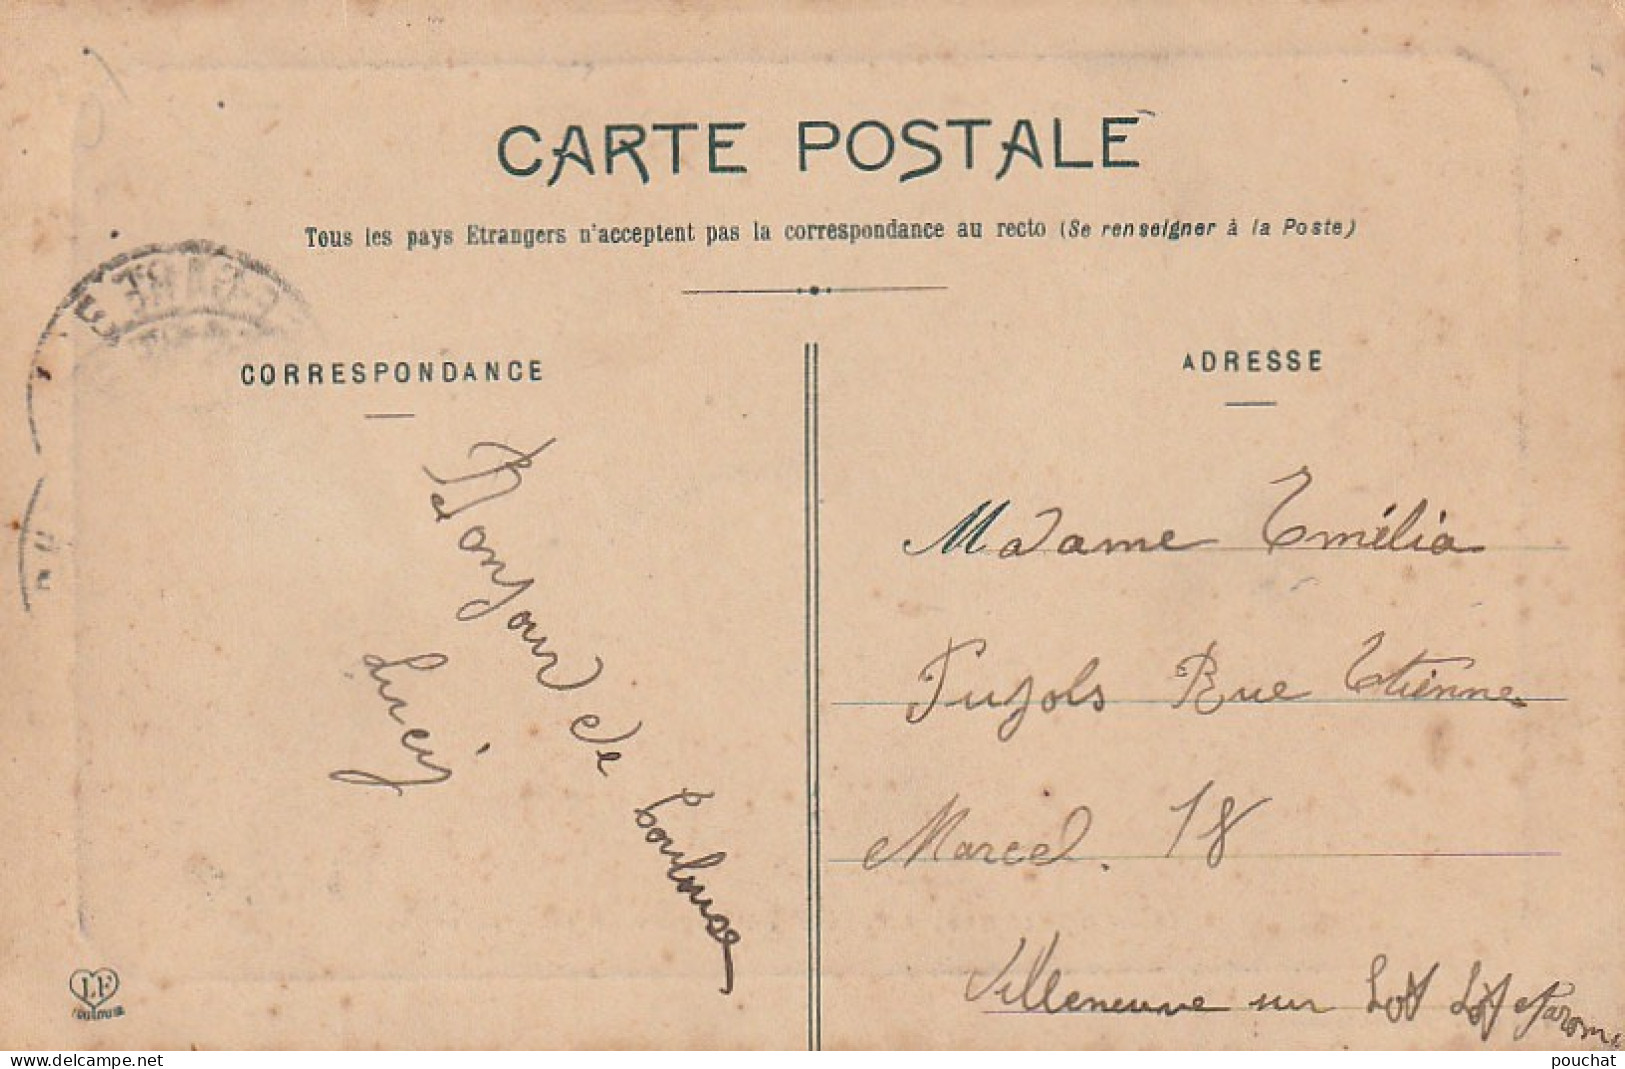 CARTE POSTALE
Tous les pays Etrangers n'acceptent pas la correspondance au recto (Se renseigner à la Poste)
CORRESPONDANCE
Bonjour de Toulouse
ADRESSE
Madame Emélia
Pujols Rue Etienne
Marcel. 18
Villeneuve sur Lot Lot
LF
TOULOUSE
www.delcampe.net
pouchat